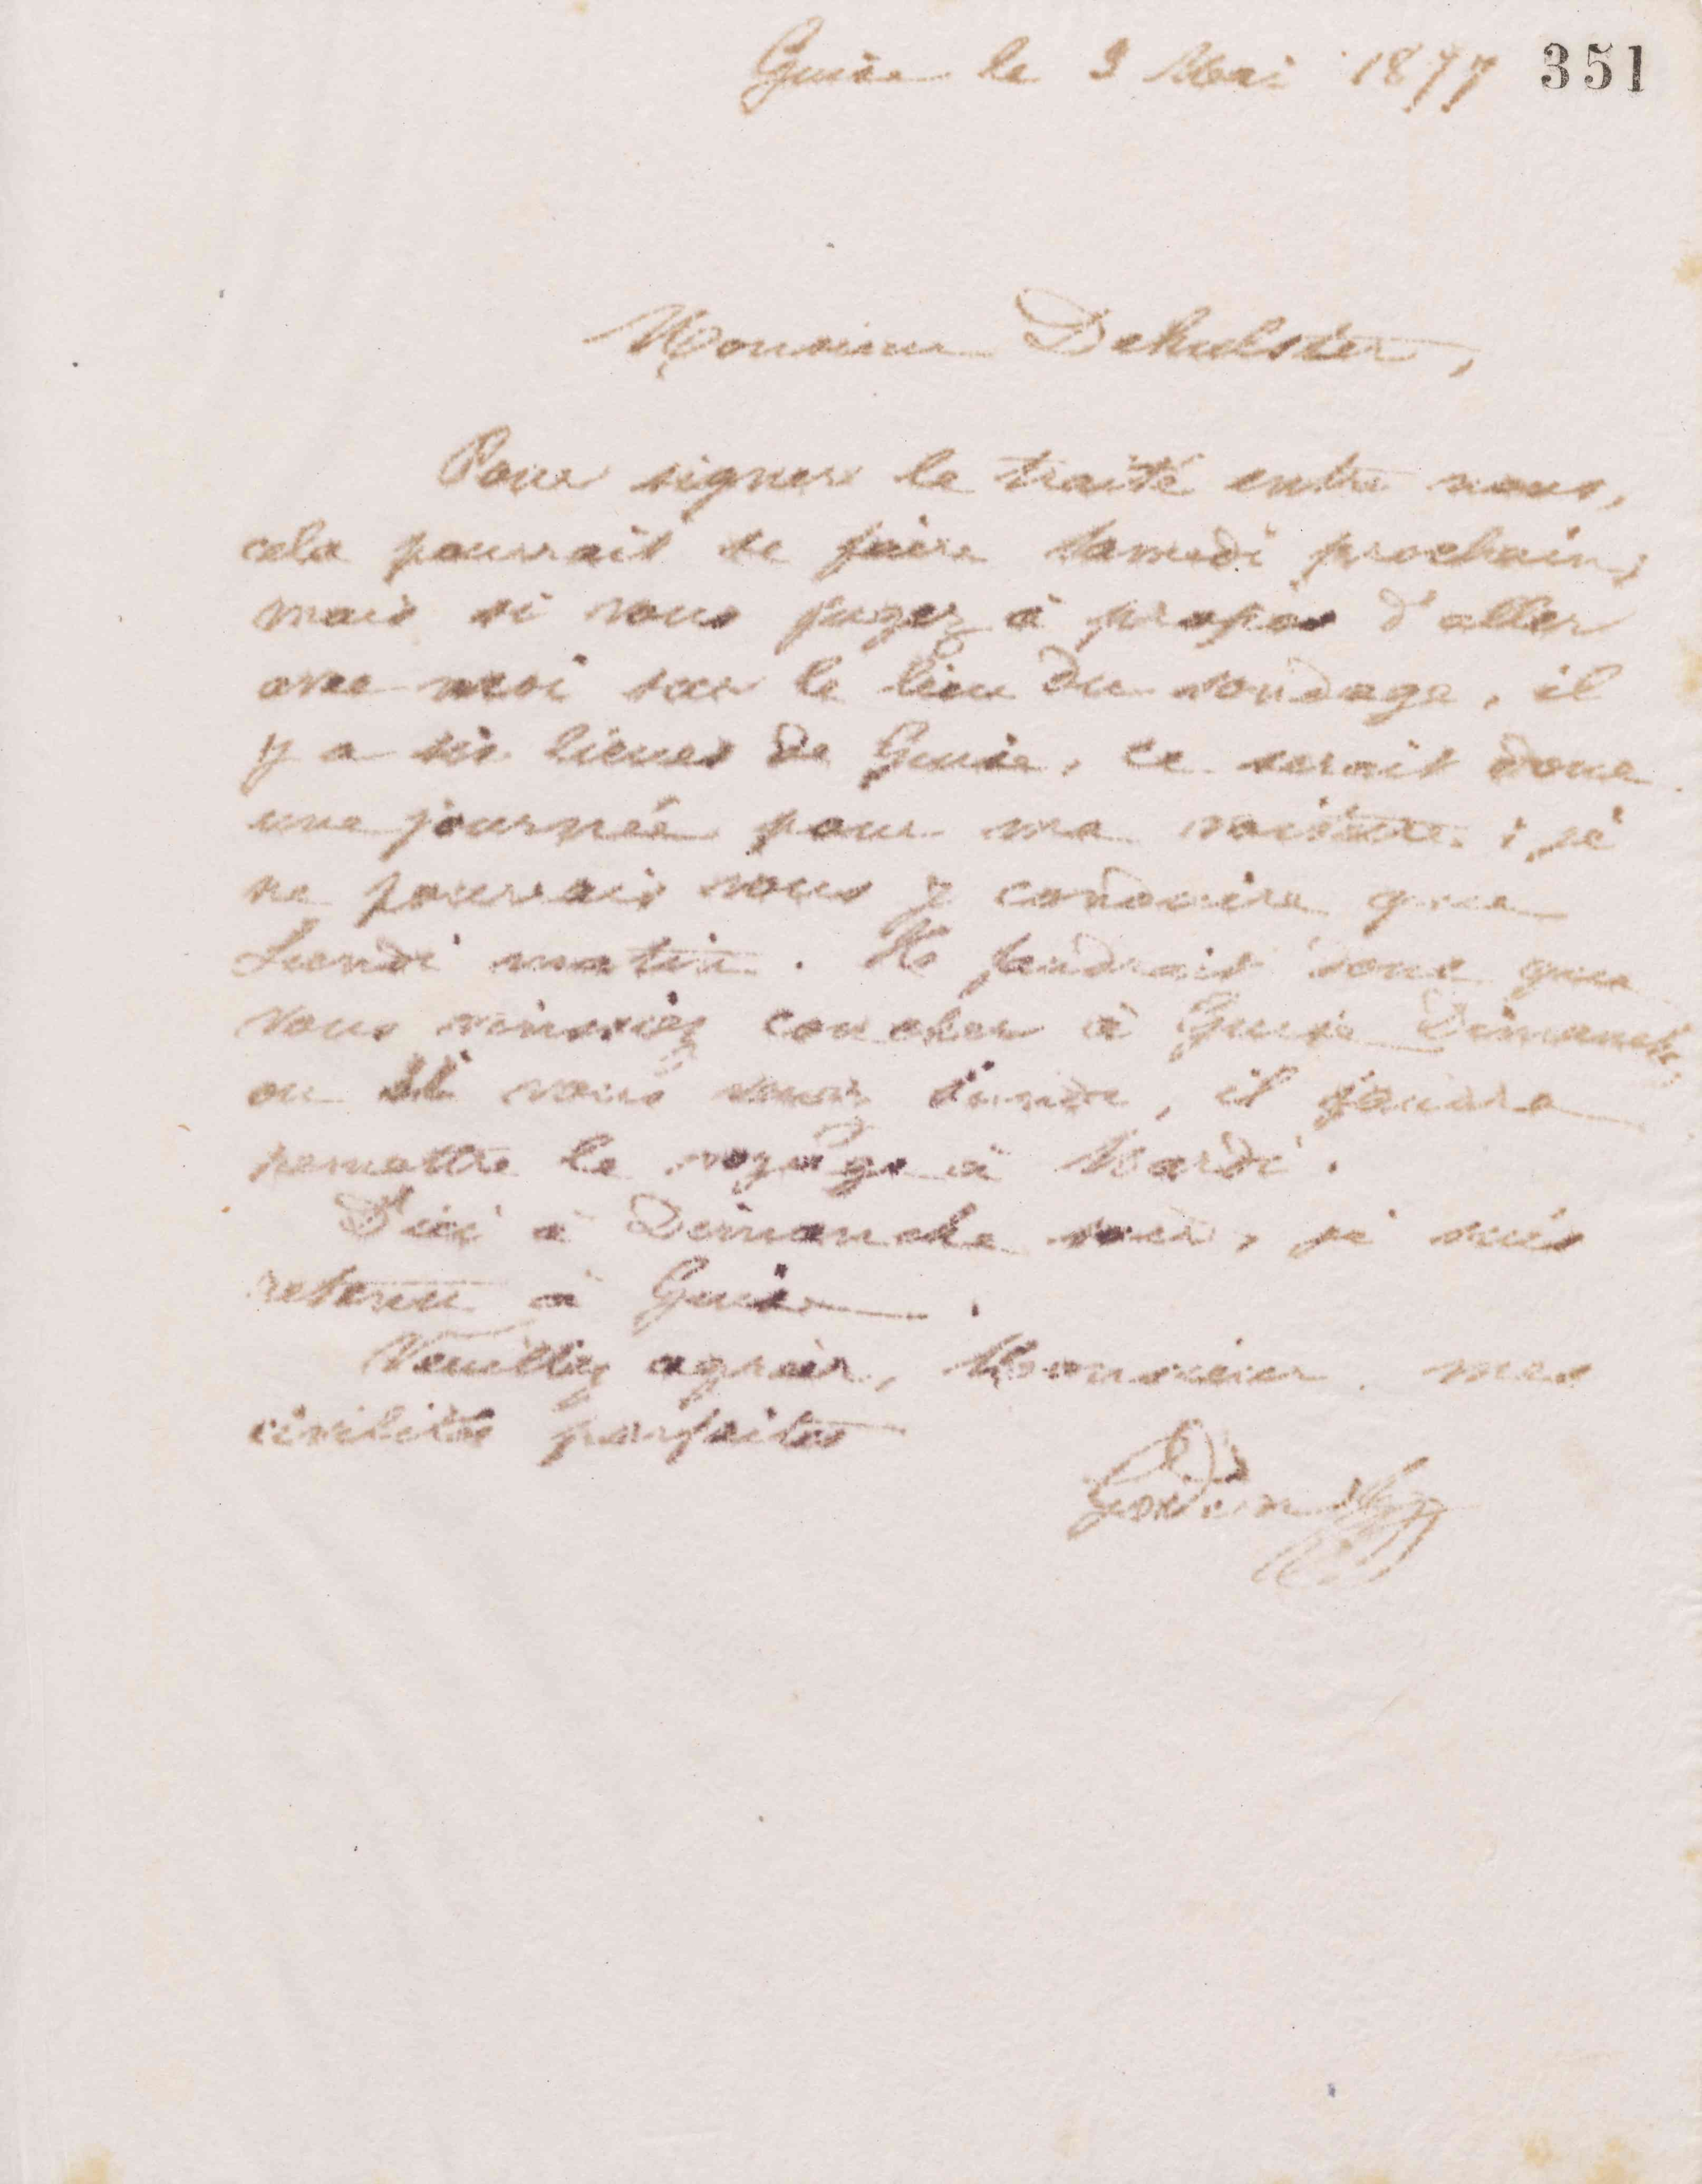 Guise le 3 Mai 1877 351
Monsieur Dehulster,
Pour signer le traité entre nous,
cela pourrait se faire samedi prochain ;
mais si vous jugez à propos d'aller
avec moi sur le lieu du sondage, il
y a six lieues de Guise, ce serait donc
une journée pour ma voiture ; je
ne pourrais vous y conduire que
Lundi matin. Il faudrait donc que
vous vinssiez coucher à Guise Dimanche
ou si vous venez Lundi, il faudra
remettre le voyage à Mardi.
D'ici à Dimanche soir, je suis
retenu à Guise.
Veuillez agréer, Monsieur, mes
civilités parfaites
Godin